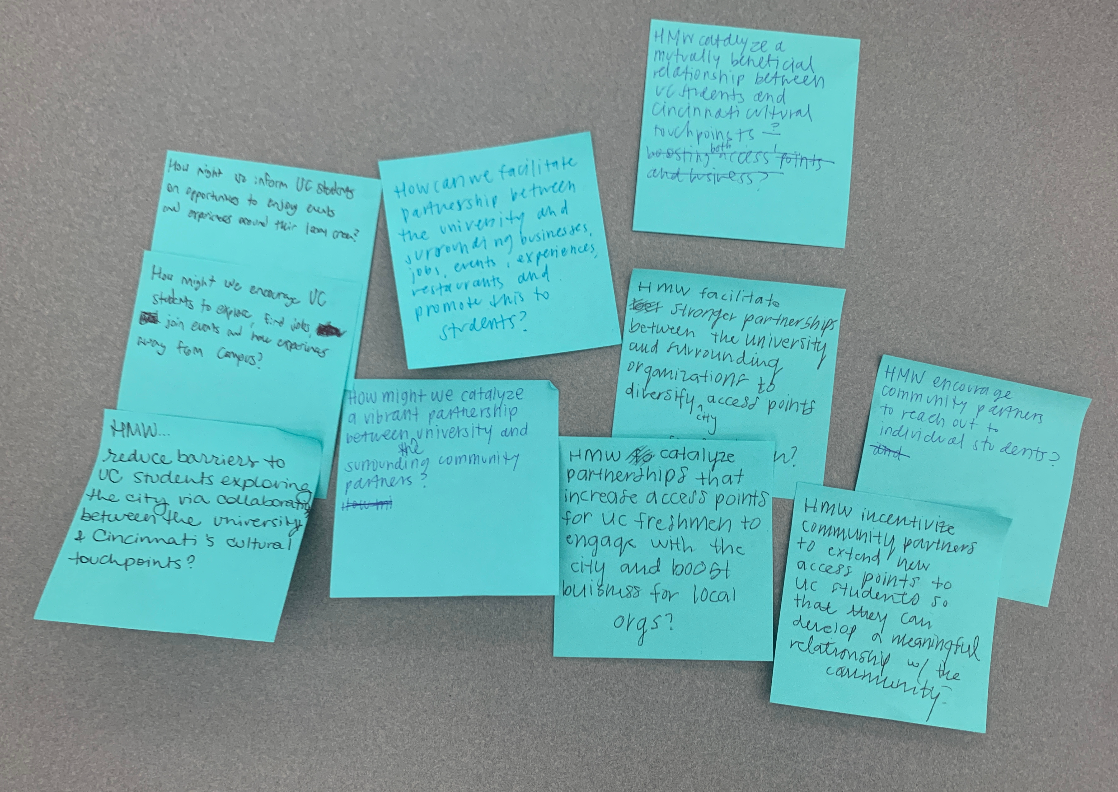 How might us inform UC students
on opportunities to enjoy events
and experiences around their living area?
How might we encourage UC
students to explore, find jobs
join events and have experiences
away from campus?
HMW...
reduce barriers to
UC students exploring
the city via collaboratio
between the university
& Cincinnati's cultural
touchpoints?
How can we facilitate
partnership between
the university and
surrounding businesses,
jobs, events, experiences,
restaurants and
promote this to
students?
How might we catalyze
a vibrant partnership
between university and
the
surrounding community
partners?
HMW catalyze a
mutually beneficial
relationship between
UC students and
Cincinnati cultural
touchpoints ?
both
boosting access points
and business?
HMW facilitate
stronger partnerships
between the university
and surrounding
organizations to
diversify access points
city
?
HMW catalyze
partnerships that
increase access points
for UC freshmen to
engage with the
city and boost
buisness for local
orgs?
HMW encourage
community partners
to reach out to
individual students?
and
HMW incentivize
community partners
to extend new
access points to
UC students so
that they can
develop a meaningful
relationship w/ the
community.